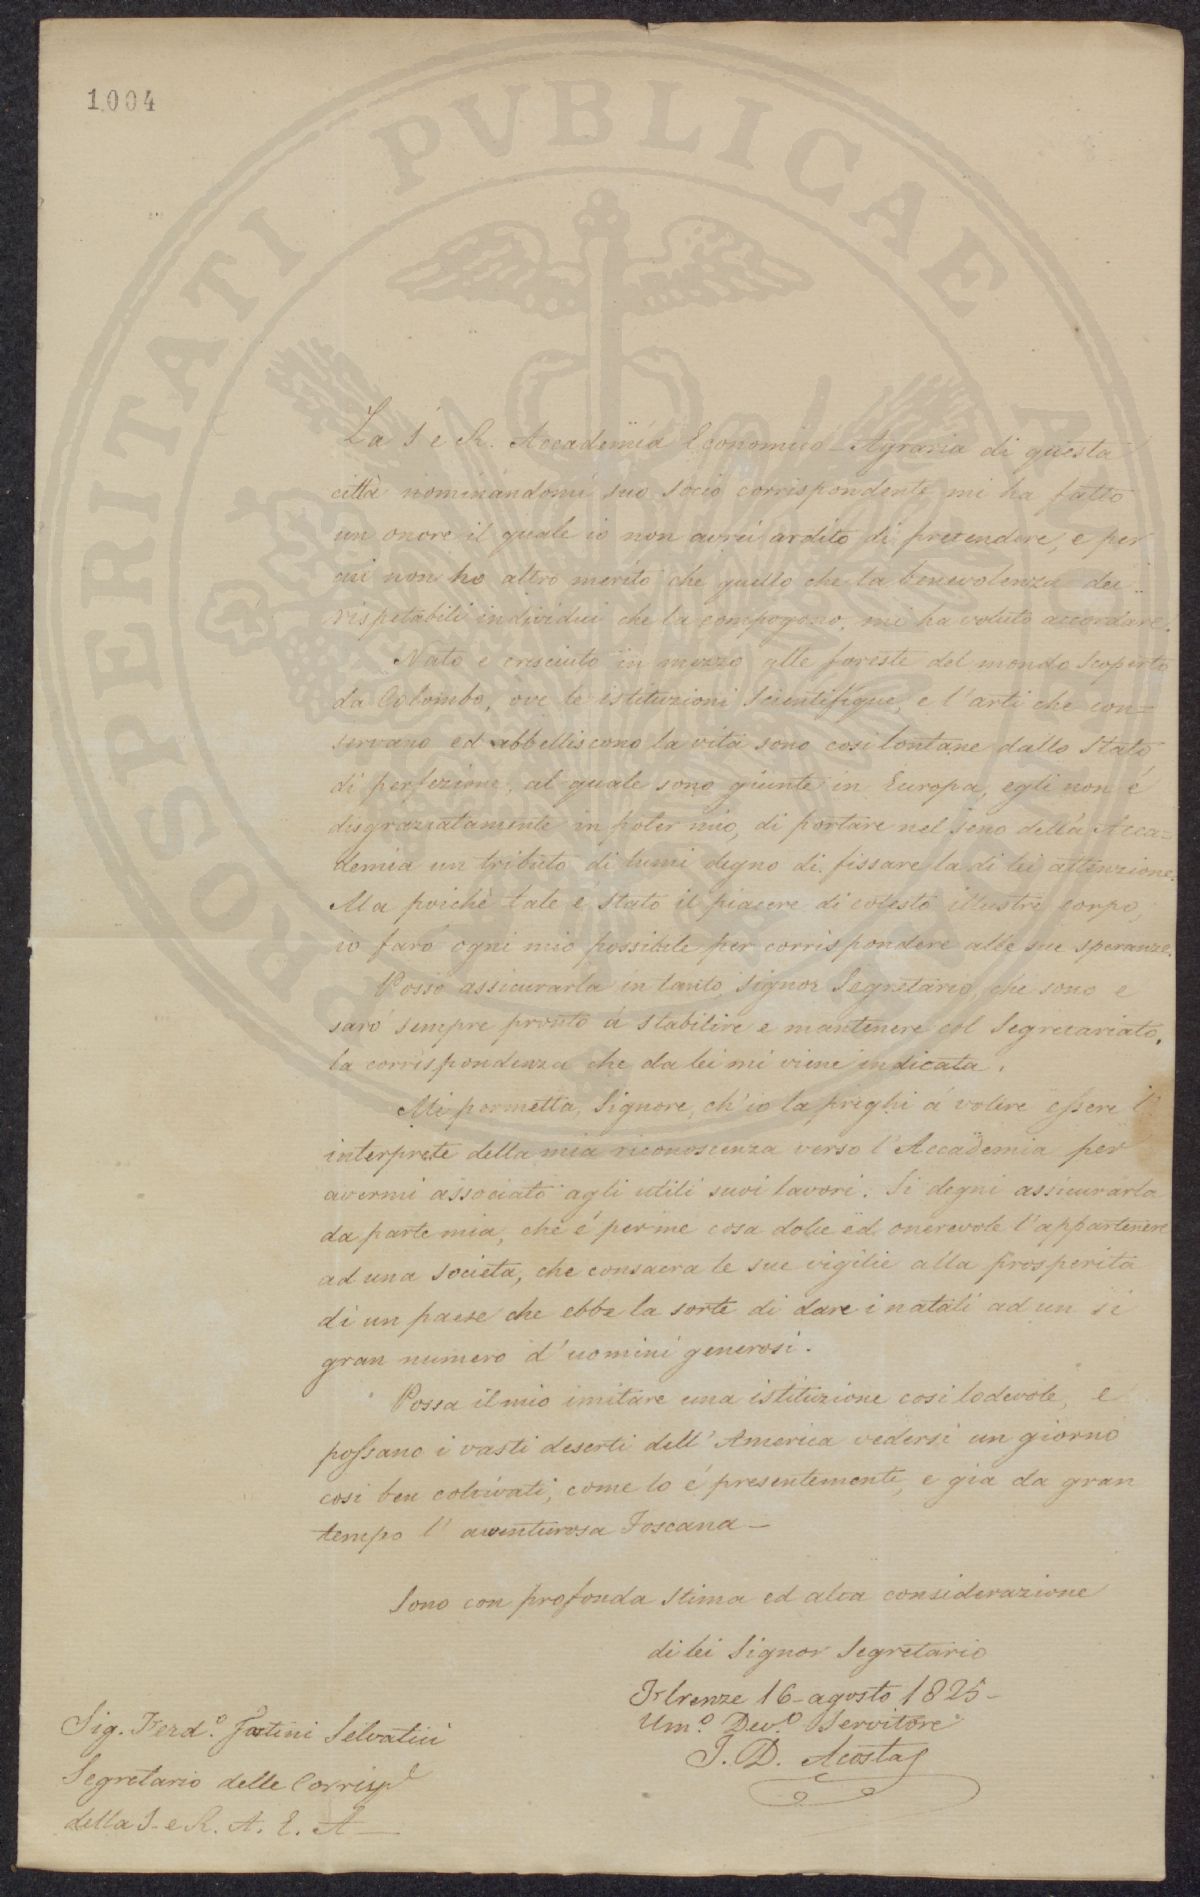 1004
PROSPERITATI PVBLICAE
La I e R. Accademia Economico-Agraria di questa
città nominandomi suo socio corrispondente mi ha fatto
un onore il quale io non avrei ardito di pretendere, e per
cui non ho altro merito che quello che la benevolenza dei
rispetabili individui che la compogono, mi ha voluto accordare.
Nato e cresciuto in mezzo alle foreste del mondo scoperto
da Colombo, ove le istituzioni scientifique, e l'arti che con-
servano ed abbelliscono la vita sono cosi lontane dallo stato
di perfezione, al quale sono giunte in Europa, egli non é
disgraziatamente in poter mio, di portare nel seno della Acca=
demia un tributo di lumi degno di fissare la di lei attenzione.
Ma poichè tale é stato il piacere di cotesto illustre corpo,
io faró ogni mio possibile per corrispondere alle sue speranze.
Posso assicurarla in tanto, Signor Segretario, che sono e
saró sempre pronto á stabilire e mantenere col Segretariato,
la corrispondenza che da lei mi viene indicata.
Mi permetta, Signore, ch'io la prighi á volere essere l'
interprete della mia riconoscenza verso l'Accademia per
avermi associato agli utili suoi lavori. Si degni assicurarla
da parte mia, che é per me cosa dolce ed onorevole l'appartenere
ad una societa, che consacra le sue vigilie alla prosperitá
di un paese che ebbe la sorte di dare i natali ad un si
gran numero d'uomini generosi.
Possa il mio imitare una istituzione cosi lodevole, e
possano i vasti deserti dell'America vedersi un giorno
cosi ben coltivati, come lo é presentemente, e gia da gran
tempo l'avventurosa Toscana—
Sono con profonda stima ed alta considerazione
di lei Signor Segretario
Firenze 16-agosto 1825-
Um.º Dev.º Servitore
J. D. Acosta
Sig. Ferd.º Tartini Selvatici
Segretario delle Corrisp.
della I. e R. A. E. A—